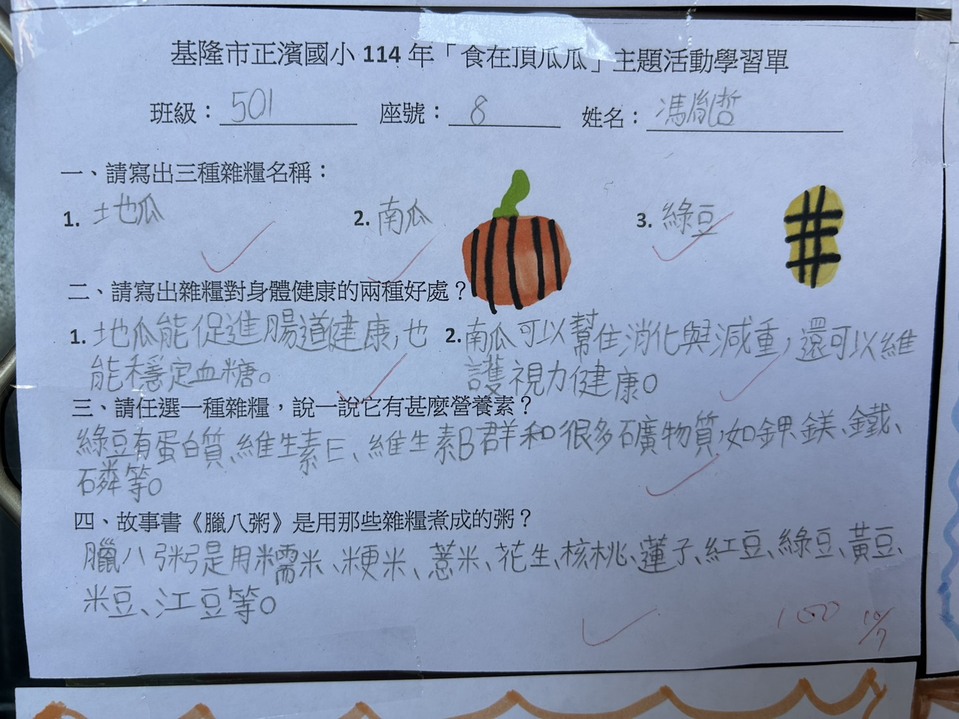 基隆市正濱國小 114 年「食在頂瓜瓜」主題活動學習單
班級：501 座號：8 姓名：馮胤哲
一、請寫出三種雜糧名稱：
1. 地瓜 2. 南瓜 3. 綠豆
二、請寫出雜糧對身體健康的兩種好處？
1. 地瓜能促進腸道健康,也
能穩定血糖。
2. 南瓜可以幫住消化與減重,還可以維
護視力健康。
三、請任選一種雜糧，說一說它有甚麼營養素？
綠豆有蛋白質、維生素E、維生素B群和很多礦物質,如鉀、鎂、鐵、
磷等。
四、故事書《臘八粥》是用那些雜糧煮成的粥？
臘八粥是用糯米、粳米、薏米、花生、核桃、蓮子、紅豆、綠豆、黃豆、
米豆、江豆等。
100 10/7